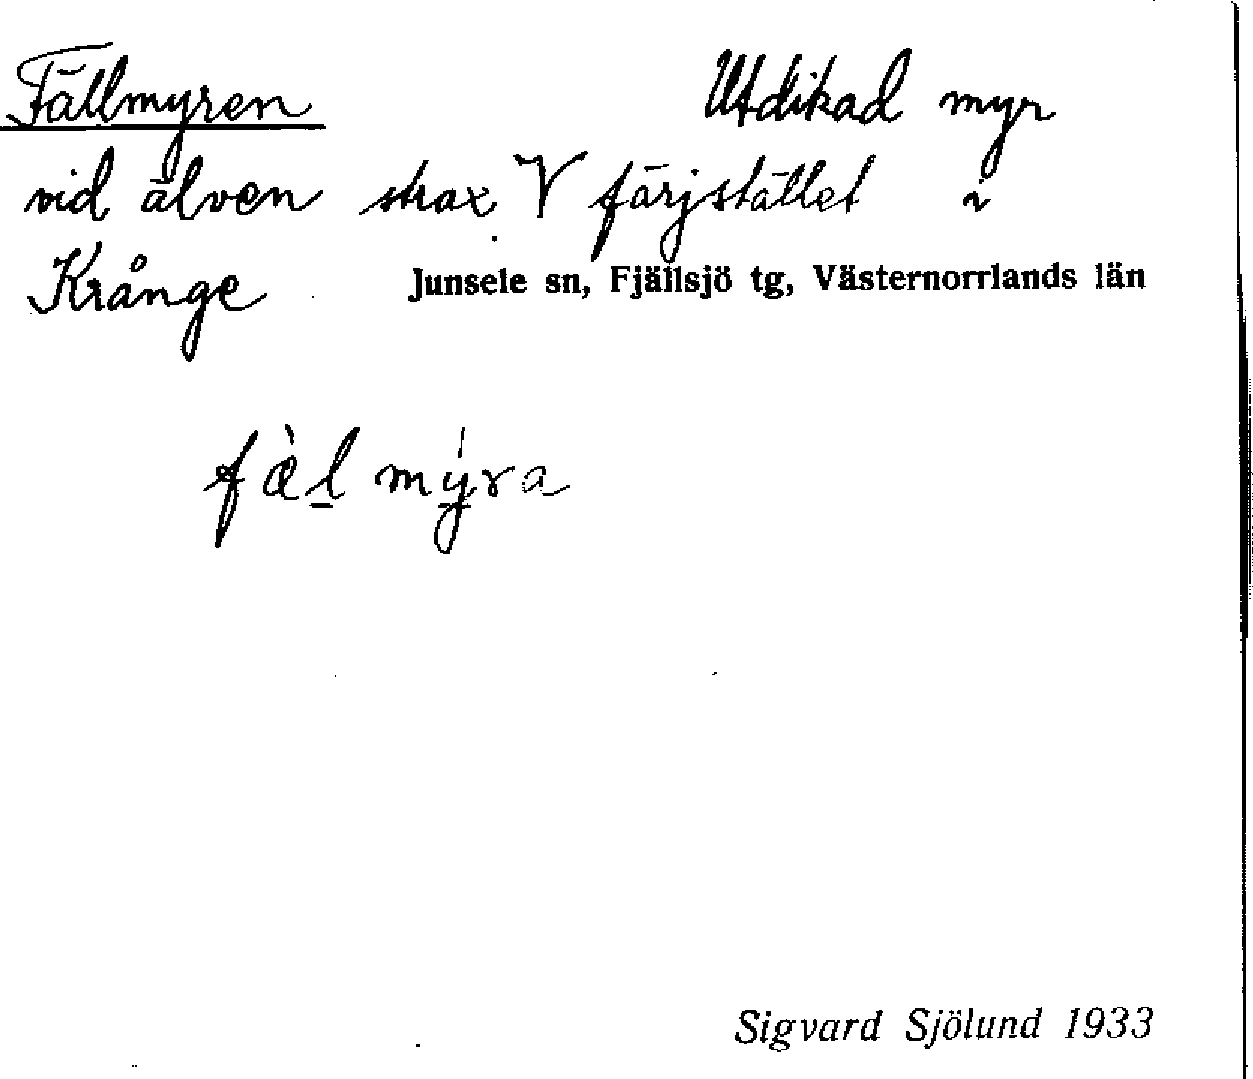 Fällmyren Utdikad myr
vid älven strax V färjstället i
Krånge Junsele sn, Fjällsjö tg, Västernorrlands län
fæ̀l̠mý̠ra
Sigvard Sjölund 1933